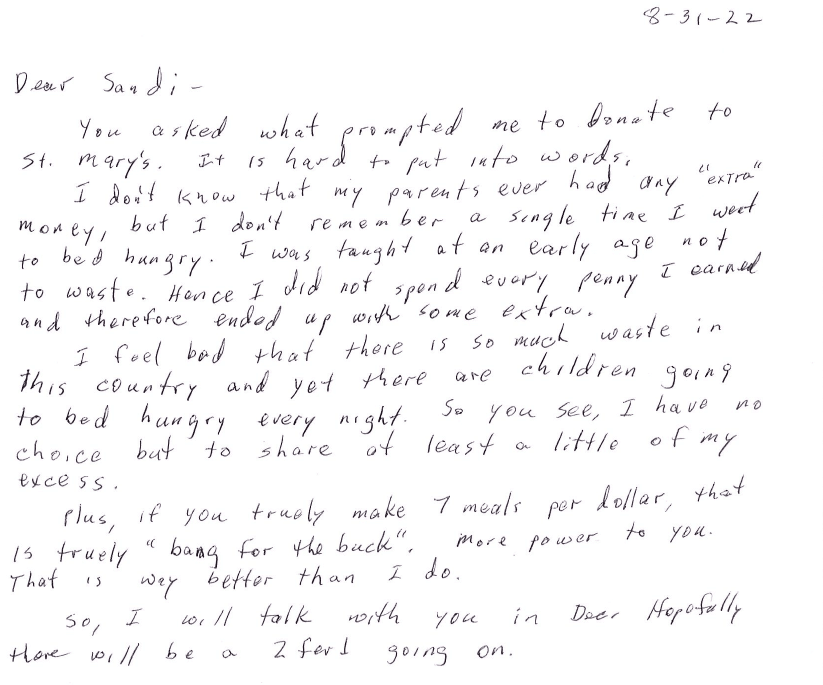 8-31-22
Dear Sandi -
You asked what prompted me to Donate to
St. Mary's. It is hard to put into words.
I don't know that my parents ever had any "extra"
money, but I don't remember a single time I went
to bed hungry. I was taught at an early age not
to waste. Hence I did not spend every penny I earned
and therefore ended up with some extra.
I feel bad that there is so much waste in
this country and yet there are children going
to bed hungry every night. So you see, I have no
choice but to share at least a little of my
excess.
Plus, if you truely make 7 meals per dollar, that
is truely "bang for the buck". More power to you.
That is way better than I do.
So, I will talk with you in Dec. Hopefully
there will be a 2 fer 1 going on.